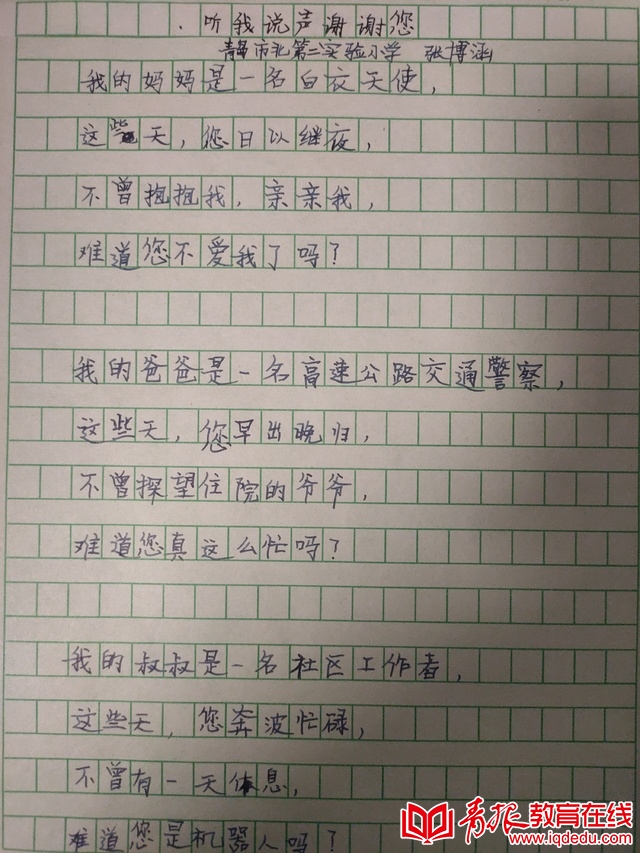 听我说声谢谢您
青岛市北第二实验小学 张博涵
我的妈妈是一名白衣天使，
这些天，您日以继夜，
不曾抱抱我，亲亲我，
难道您不爱我了吗？
我的爸爸是一名高速公路交通警察，
这些天，您早出晚归，
不曾探望住院的爷爷，
难道您真这么忙吗？
我的叔叔是一名社区工作者，
这些天，您奔波忙碌，
不曾有一天休息，
难道您是机器人吗？
青报教育在线
www.iqdedu.com